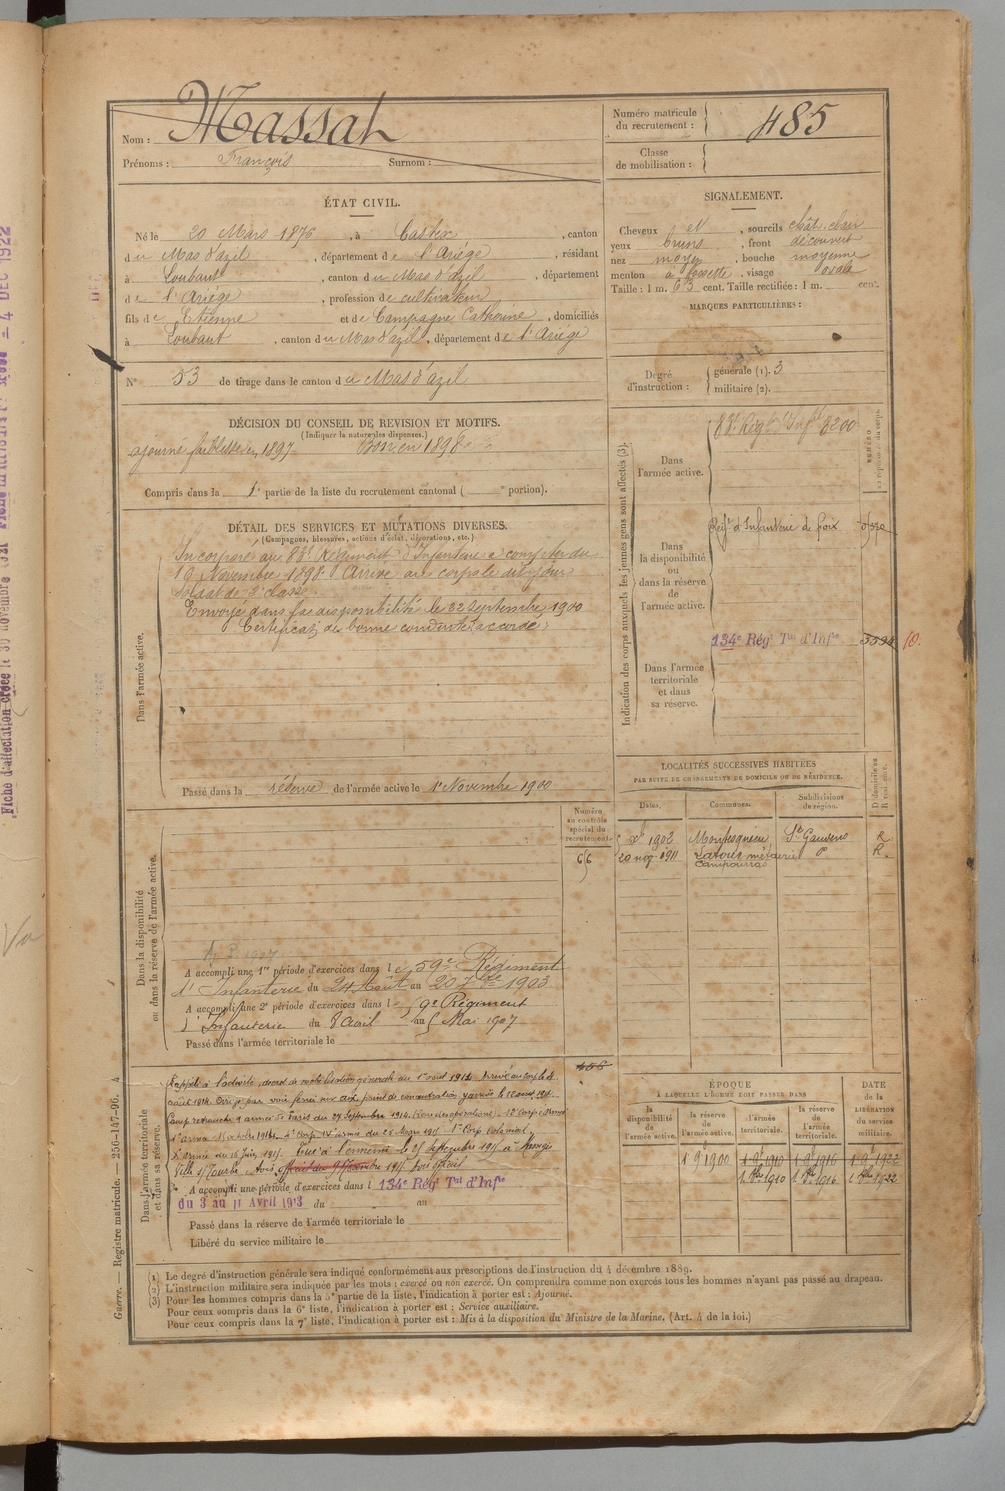 Nom : Massat
Prénoms : François Surnom :
Numéro matricule du recrutement : 485
Classe de mobilisation :
ÉTAT CIVIL.
Né le 20 Mars 1876, à Castex, canton
du Mas d'azil, département de l'Ariège, résidant
à Loubaut, canton du Mas d'azil, département
de l'Ariège, profession de cultivateur
fils de Etienne et de Campagne Catherine, domiciliés
à Loubaut, canton du Mas d'azil, département de l'Ariège
N° 53 de tirage dans le canton du Mas d'azil
SIGNALEMENT.
Cheveux et, sourcils chât. clair
yeux bruns, front découvert
nez moyen, bouche moyenne
menton à fossette, visage ovale
Taille : 1 m. 63 cent. Taille rectifiée : 1 m. cent.
MARQUES PARTICULIÈRES :
Degré d'instruction : générale (1). 3
militaire (2).
DÉCISION DU CONSEIL DE REVISION ET MOTIFS.
(Indiquer la nature des dispenses.)
ajourné faiblesse en 1897 Bon en 1898
Compris dans la 1e partie de la liste du recrutement cantonal ( e portion).
DÉTAIL DES SERVICES ET MUTATIONS DIVERSES.
(Campagnes, blessures, actions d'éclat, décorations, etc.)
Dans l'armée active.
Incorporé au 83e Régiment d'Infanterie à compter du
16 Novembre 1898. Arrivé au corps le dit jour
soldat de 2e classe.
Envoyé dans la disponibilité le 22 Septembre 1900
Certificat de bonne conduite accordé.
Passé dans la réserve de l'armée active le 1er Novembre 1900
Indication des corps auxquels les jeunes gens sont affectés (3).
Dans l'armée active.
83e Régt d'Infie 8200
Dans la disponibilité ou dans la réserve de l'armée active.
Régt d'Infanterie de foix
Dans l'armée territoriale et dans sa réserve.
134e Régt Tal d'Infie 10.
LOCALITÉS SUCCESSIVES HABITÉES
PAR SUITE DE CHANGEMENTS DE DOMICILE OU DE RÉSIDENCE.
Dates. Communes. Subdivisions de région. D domicile ou R résidence.
Xbre 1902 Montesquieu St Gaudens R
20 nov. 1911 Latour métairie do R.
Numéro au contrôle spécial du recrutement.
66
Dans la disponibilité ou dans la réserve de l'armée active.
A accompli une 1re période d'exercices dans le 59e Régiment
d'Infanterie du 24 Août au 20 7bre 1903
A accompli une 2e période d'exercices dans le 9e Régiment
d'Infanterie du 8 avril au 5 Mai 1907
Passé dans l'armée territoriale le
Dans l'armée territoriale et dans sa réserve.
Rappelé à l'activité, décret de mobilisation générale du 1er août 1914. Arrivé au corps le
août 1914. Dirigé par voie ferrée sur point de concentration
Camp retranché armée de Paris du 27 Septembre 1914. (Zone des opérations).
Xe armée du 16 Juin 1915. Tué à l'ennemi le 25 septembre 1915 à Massiges
Ville s/ Tourbe. Avis officiel du 9 1915 Avis officiel
A accompli une période d'exercices dans l 134e Régt Tal d'Infie
du 3 au 11 Avril 1913 du au
Passé dans la réserve de l'armée territoriale le
Libéré du service militaire le
ÉPOQUE
À LAQUELLE L'HOMME DOIT PASSER DANS
la disponibilité de l'armée active. la réserve de l'armée active. l'armée territoriale. la réserve de l'armée territoriale.
DATE de la LIBÉRATION du service militaire.
1 9 1900 1 8 1910 1 8 1916 1 8 1922
1. 8bre 1910 1. 8bre 1916 1. 8bre 1922
(1) Le degré d'instruction générale sera indiqué conformément aux prescriptions de l'instruction du 4 décembre 1889.
(2) L'instruction militaire sera indiquée par les mots : exercé ou non exercé. On comprendra comme non exercés tous les hommes n'ayant pas passé au drapeau.
(3) Pour les hommes compris dans la 5e partie de la liste, l'indication à porter est : Ajourné.
Pour ceux compris dans la 6e liste, l'indication à porter est : Service auxiliaire.
Pour ceux compris dans la 7e liste, l'indication à porter est : Mis à la disposition du Ministre de la Marine. (Art. 4 de la loi.)
Guerre. — Registre matricule. — 256-147-96. 4